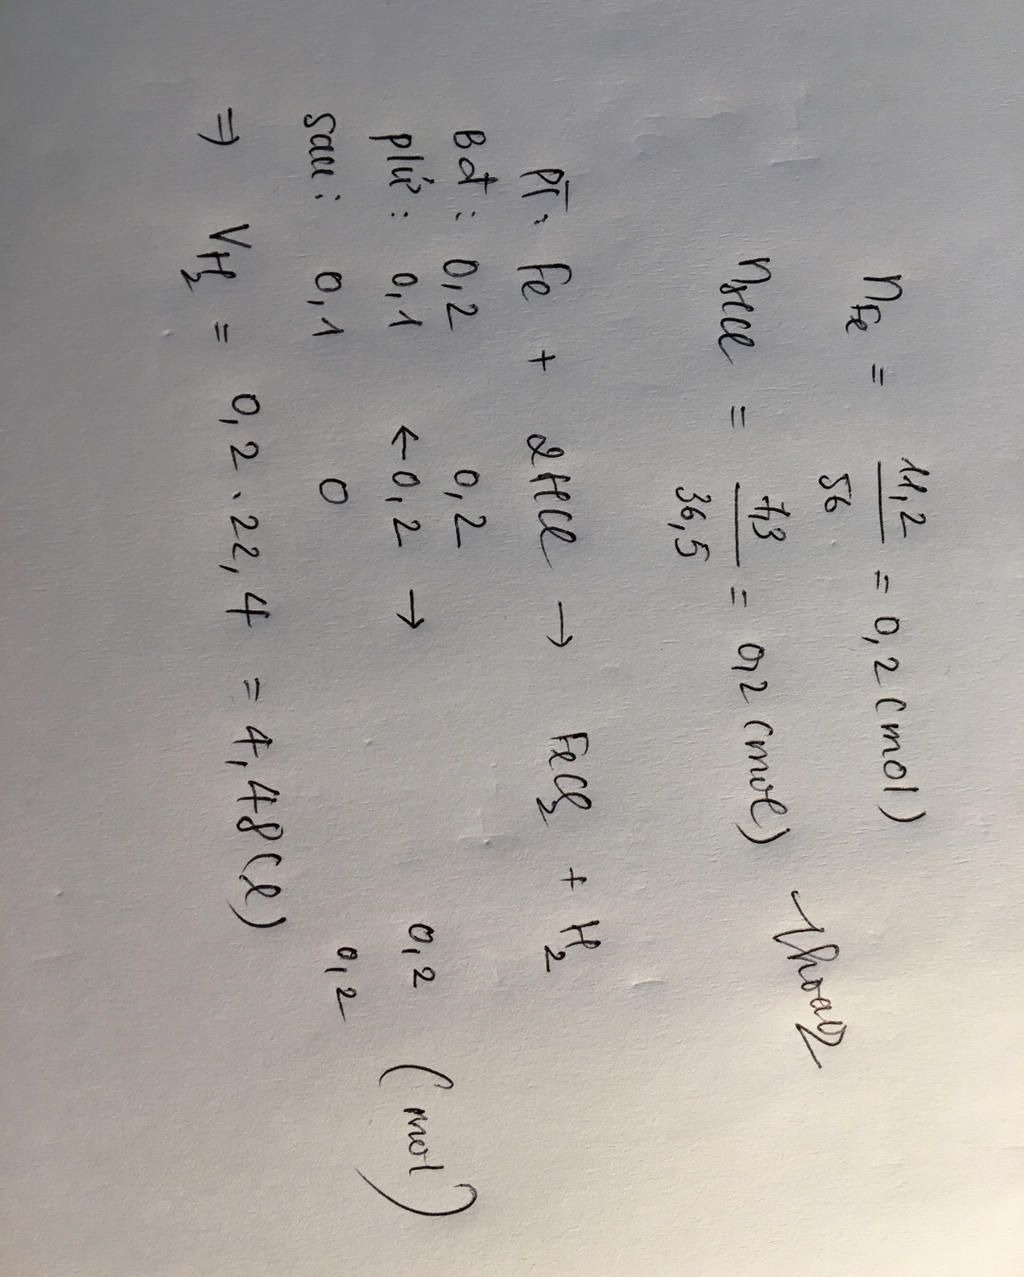 nFe = 11,2/56 = 0,2 (mol)
nHCl = 7,3/36,5 = 0,2 (mol)
PT: Fe + 2HCl → FeCl2 + H2
Bđ: 0,2 0,2
pứ: 0,1 ← 0,2 → 0,2 (mol)
sau: 0,1 0 0,2
⇒ VH2 = 0,2 . 22,4 = 4,48 (l)